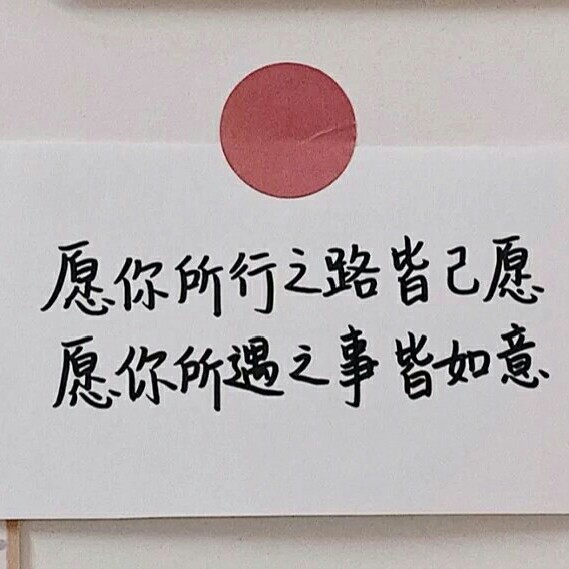 愿你所行之路皆己愿
愿你所遇之事皆如意